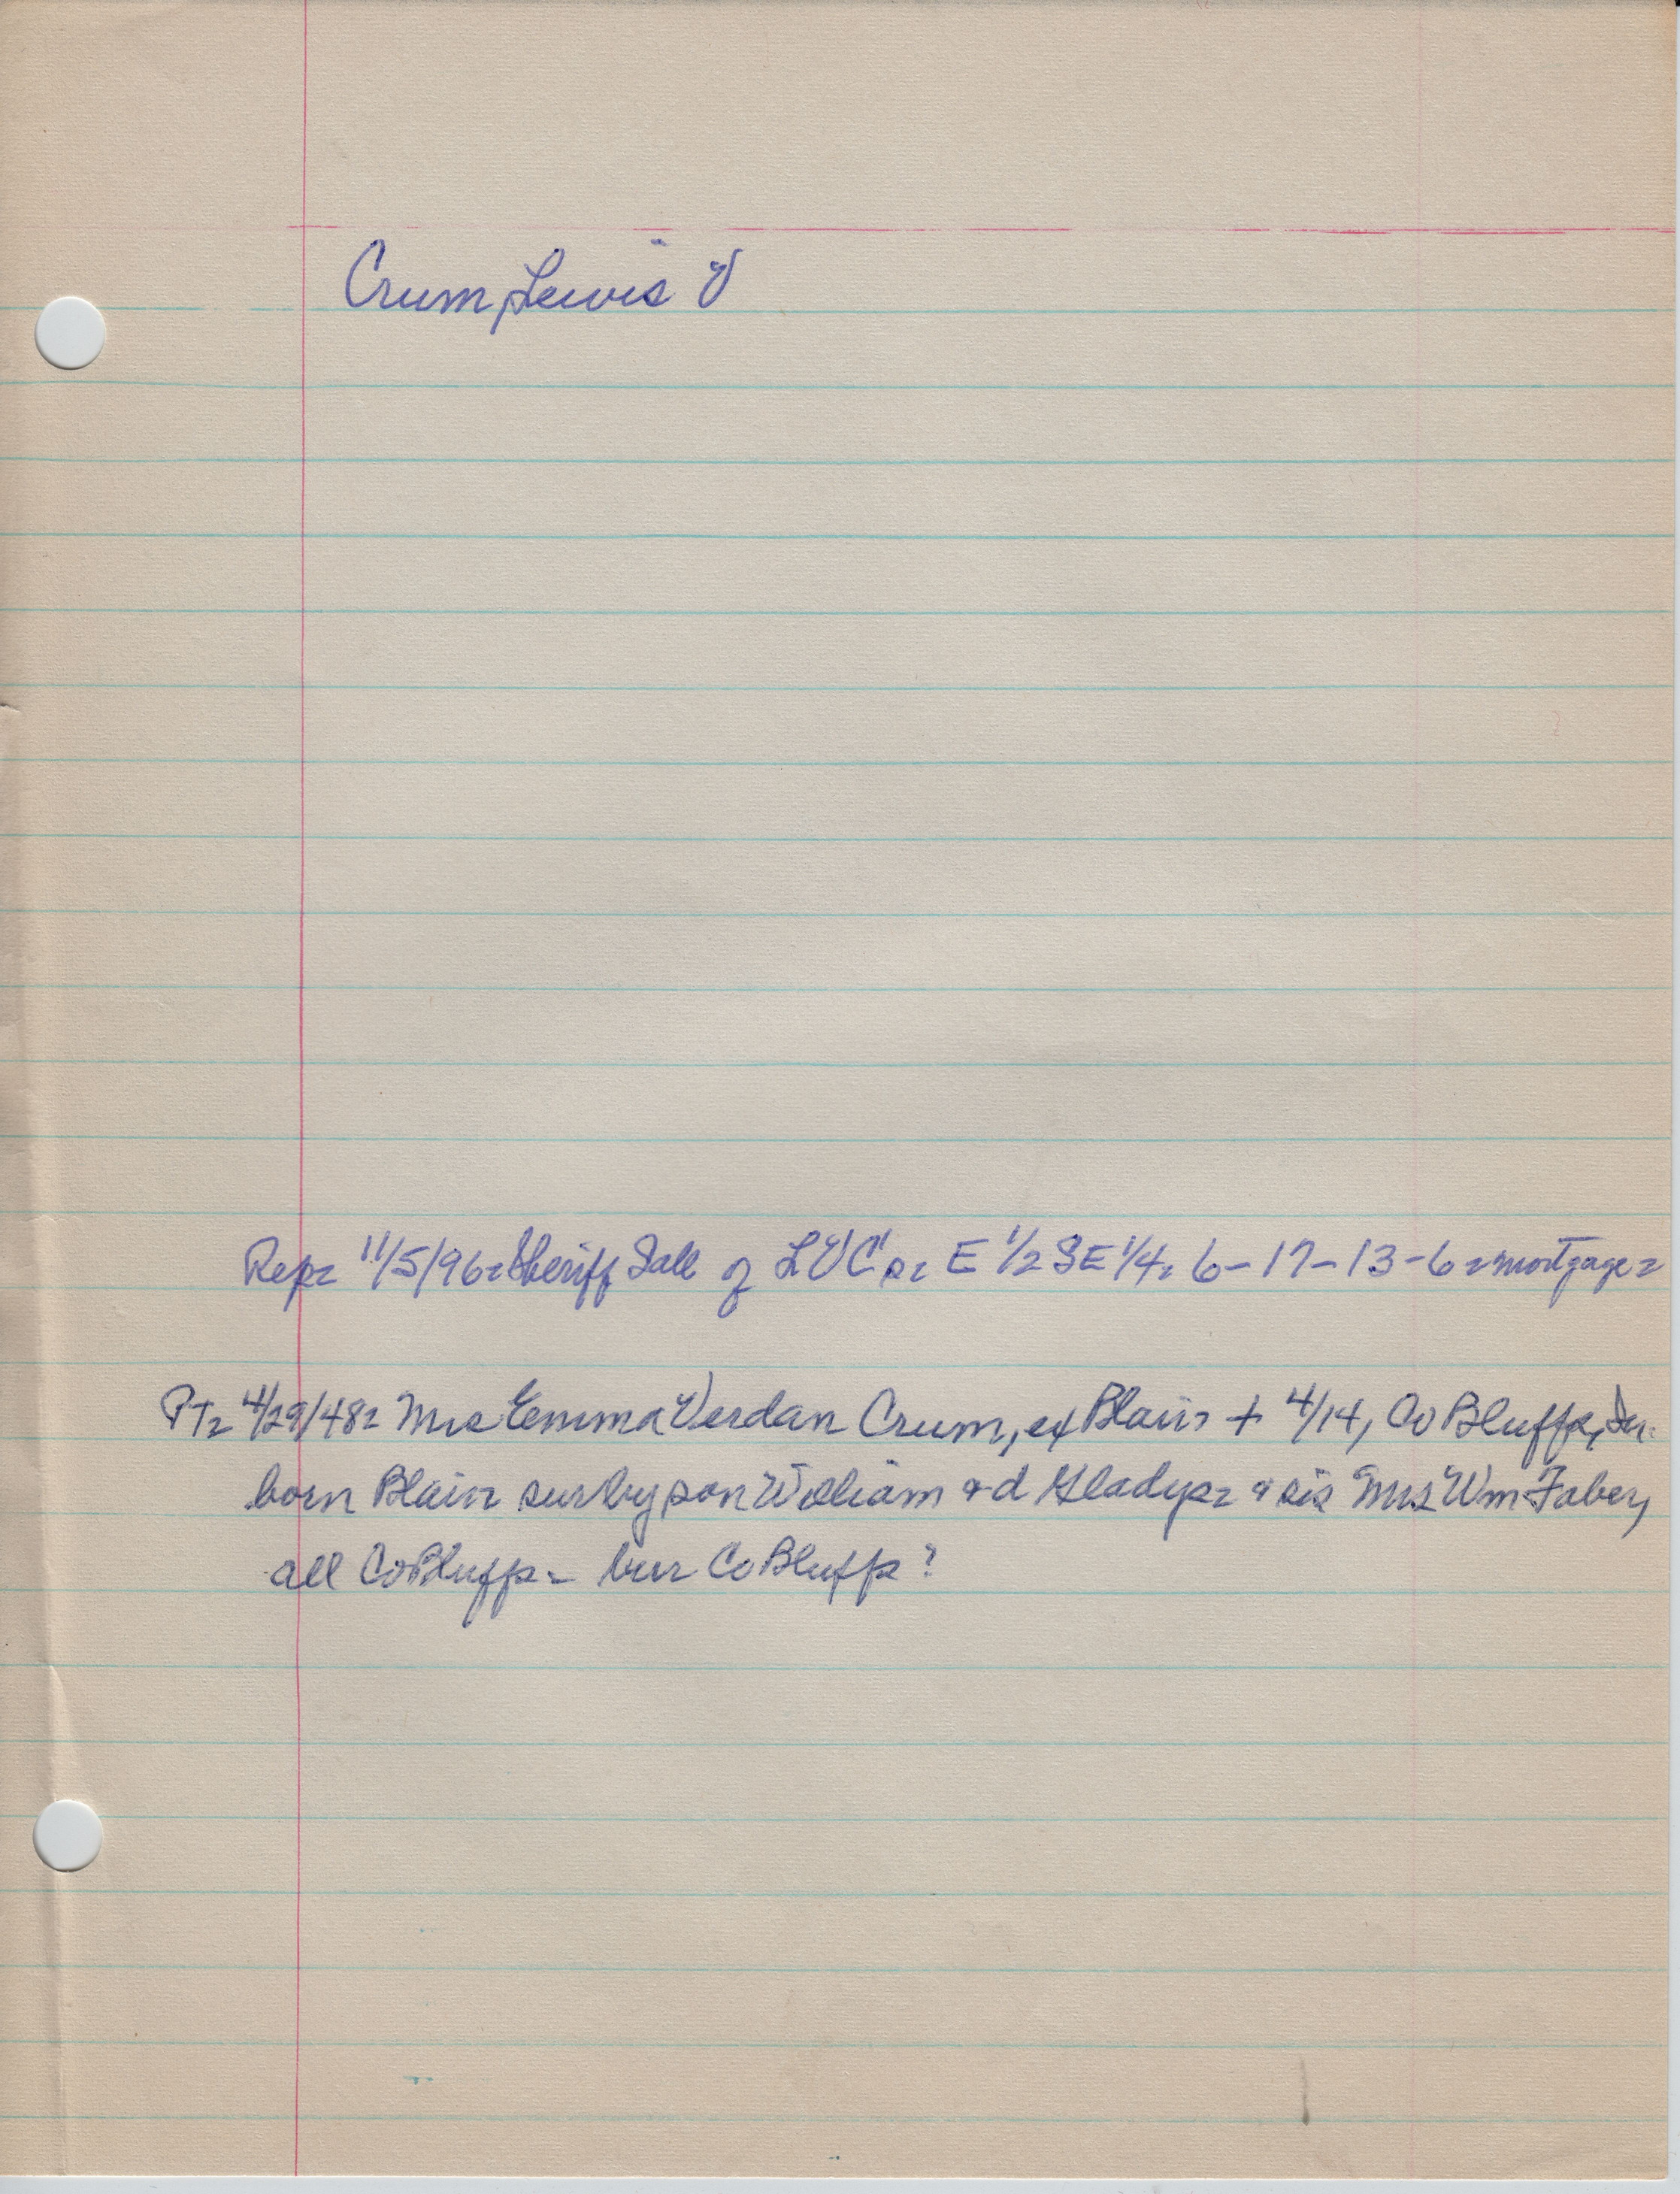 Crum, Lewis V
Rep= 11/5/96= Sheriff Sale of LVC's= E 1/2 SE 1/4= 6-17-13-6= mortgage=
PT= 4/29/48= Mrs Emma Verdan Crum, ex Blair + 4/14, Co Bluffs,
born Blair= sur by son William + d Gladys= & sis Mrs Wm Faber,
all Co Bluffs= bur Co Bluffs?